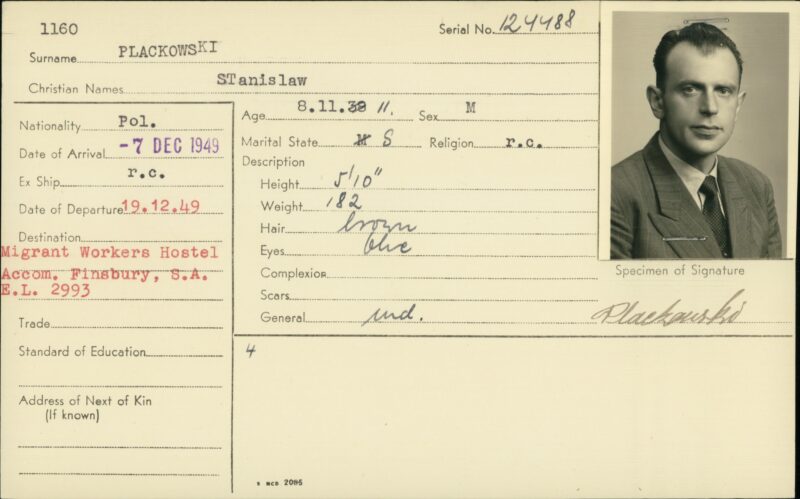 1160
Serial No. 124488
Surname PLACKOWSKI
Christian Names STanislaw
Nationality Pol.
Date of Arrival -7 DEC 1949
Ex Ship r.c.
Date of Departure 19.12.49
Destination
Migrant Workers Hostel
Accom. Finsbury, S.A.
E.L. 2993
Trade
Standard of Education
Address of Next of Kin
(If known)
Age 8.11.39 11. Sex M
Marital State M S Religion r.c.
Description
Height 5'10"
Weight 182
Hair brown
Eyes blue
Complexion
Scars
General md.
4
Specimen of Signature
Plackowski
S MCD 2085